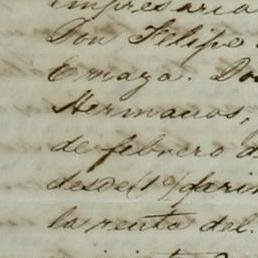 impresaria
Don Felipe
Ermaza. Do
Hermanos,
de febrero d
desde 1º
la renta del